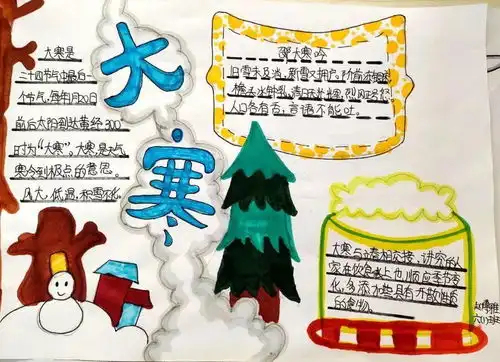 大寒
大寒是
二十四节气中最后一
个节气,每年1月20日
前后太阳到达黄经300°
时为“大寒”。大寒是天气
寒冷到极点的意思。
风大,低温,积雪不化。
邵大寒吟
旧雪未及消,新雪又拥户。阶前冻银床,
檐头冰钟乳。清日无光辉,烈风正号怒。
人口各有舌,言语不能吐。
大寒与立春相交接,讲究的人
家在饮食上也顺应季节变
化,多添加些具有升散性质
的食物。
六(1)班